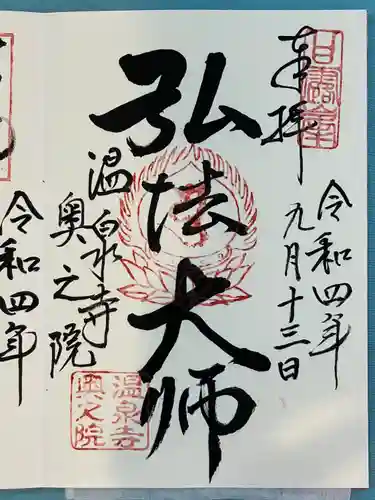 奉拝
甘露山
令和四年
九月十三日
弘法大師
温泉寺
奥之院
温泉寺
奥之院
令和四年